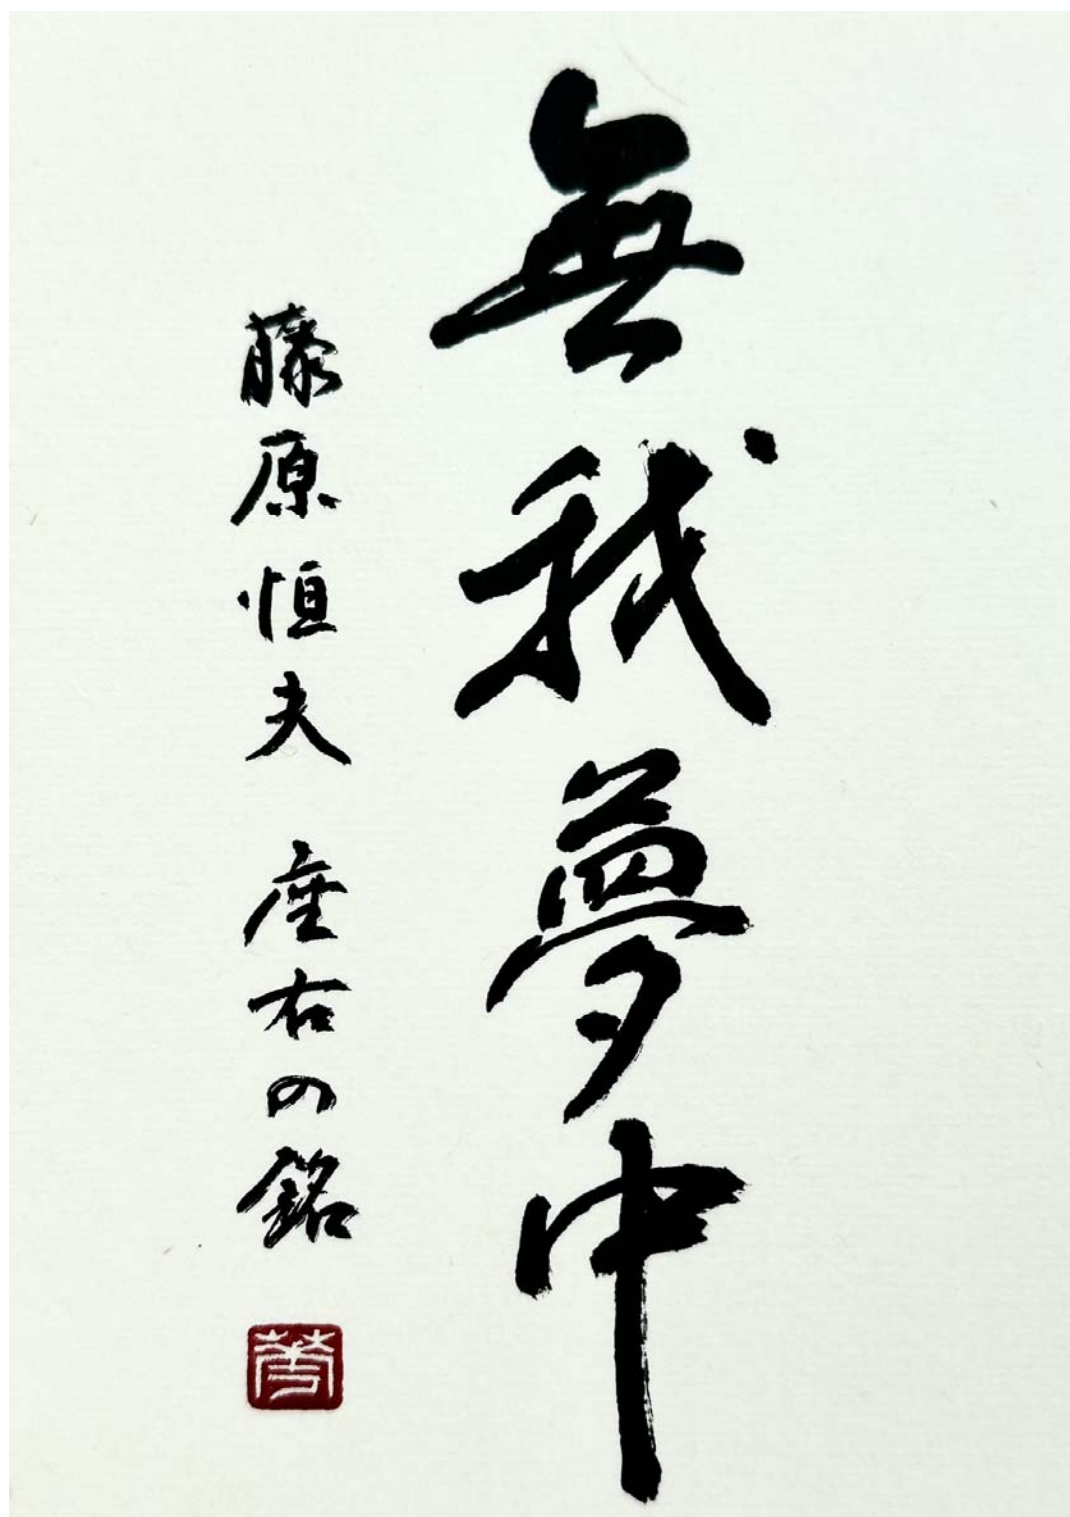 無我夢中
藤原恒夫 座右の銘